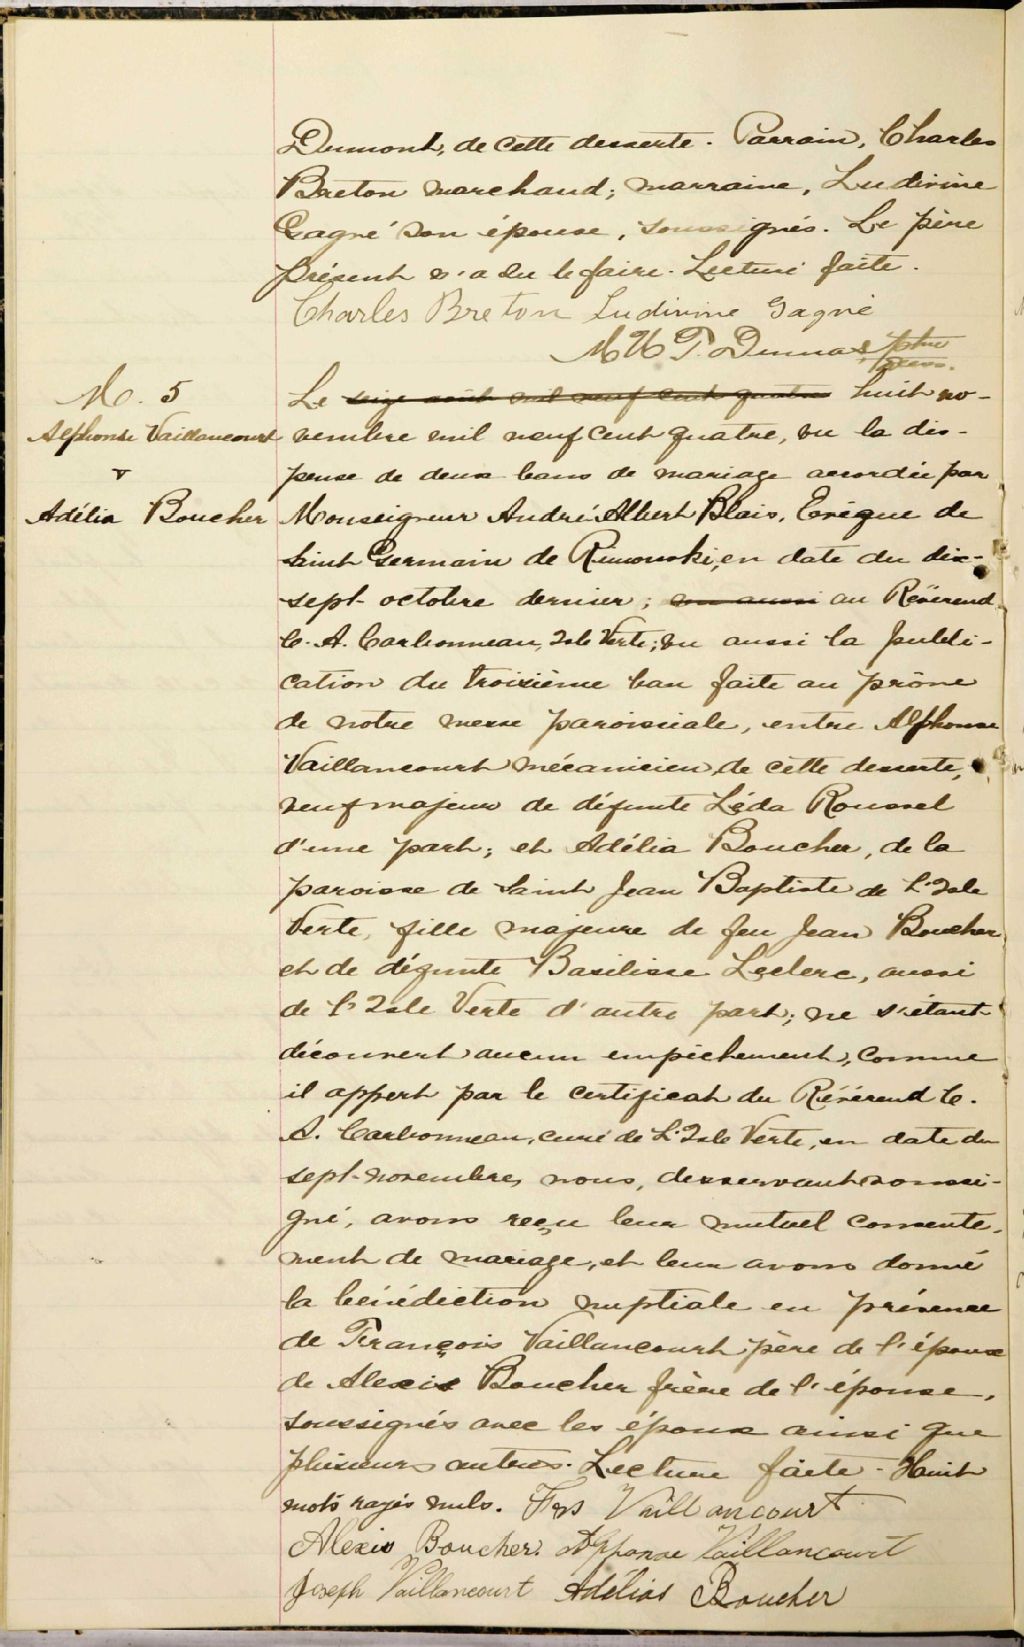 Dumont, de cette desserte. Parrain, Charles
Breton marchand; marraine, Ludivine
Gagné son épouse, soussignés. Le père
présent n'a su le faire. Lecture faite.
Charles Breton Ludivine Gagné
M U P. Dumas, ptre
M. 5
Le seize août mil neuf cent quatre huit no-
Alphonse Vaillancourt
vembre mil neuf cent quatre, vu la dis-
v
pense de deux bans de mariage accordée par
Adélia Boucher
Monseigneur André Albert Blais, Evêque de
Saint Germain de Rimouski, en date du dix-
sept octobre dernier; vu aussi au Révérend
C. A. Carbonneau, Isle Verte; vu aussi la publi-
cation du troisième ban faite au prône
de notre messe paroissiale, entre Alphonse
Vaillancourt mécanicien de cette desserte,
veuf majeur de défunte Léda Roussel
d'une part; et Adélia Boucher, de la
paroisse de Saint Jean Baptiste de l'Isle
Verte, fille majeure de feu Jean Boucher
et de défunte Basilisse Leclerc, aussi
de l'Isle Verte d'autre part; ne s'étant
découvert aucun empêchement, comme
il appert par le certificat du Révérend C.
A. Carbonneau, curé de L'Isle Verte, en date du
sept novembre, nous, desservant soussi-
gné, avons reçu leur mutuel consente-
ment de mariage, et leur avons donné
la bénédiction nuptiale en présence
de François Vaillancourt père de l'époux
de Alexis Boucher frère de l'épouse,
soussignés avec les époux ainsi que
plusieurs autres. Lecture faite. Huit
mots rayés nuls. Frs Vaillancourt
Alexis Boucher. Alphonse Vaillancourt
Joseph Vaillancourt Adélias Boucher